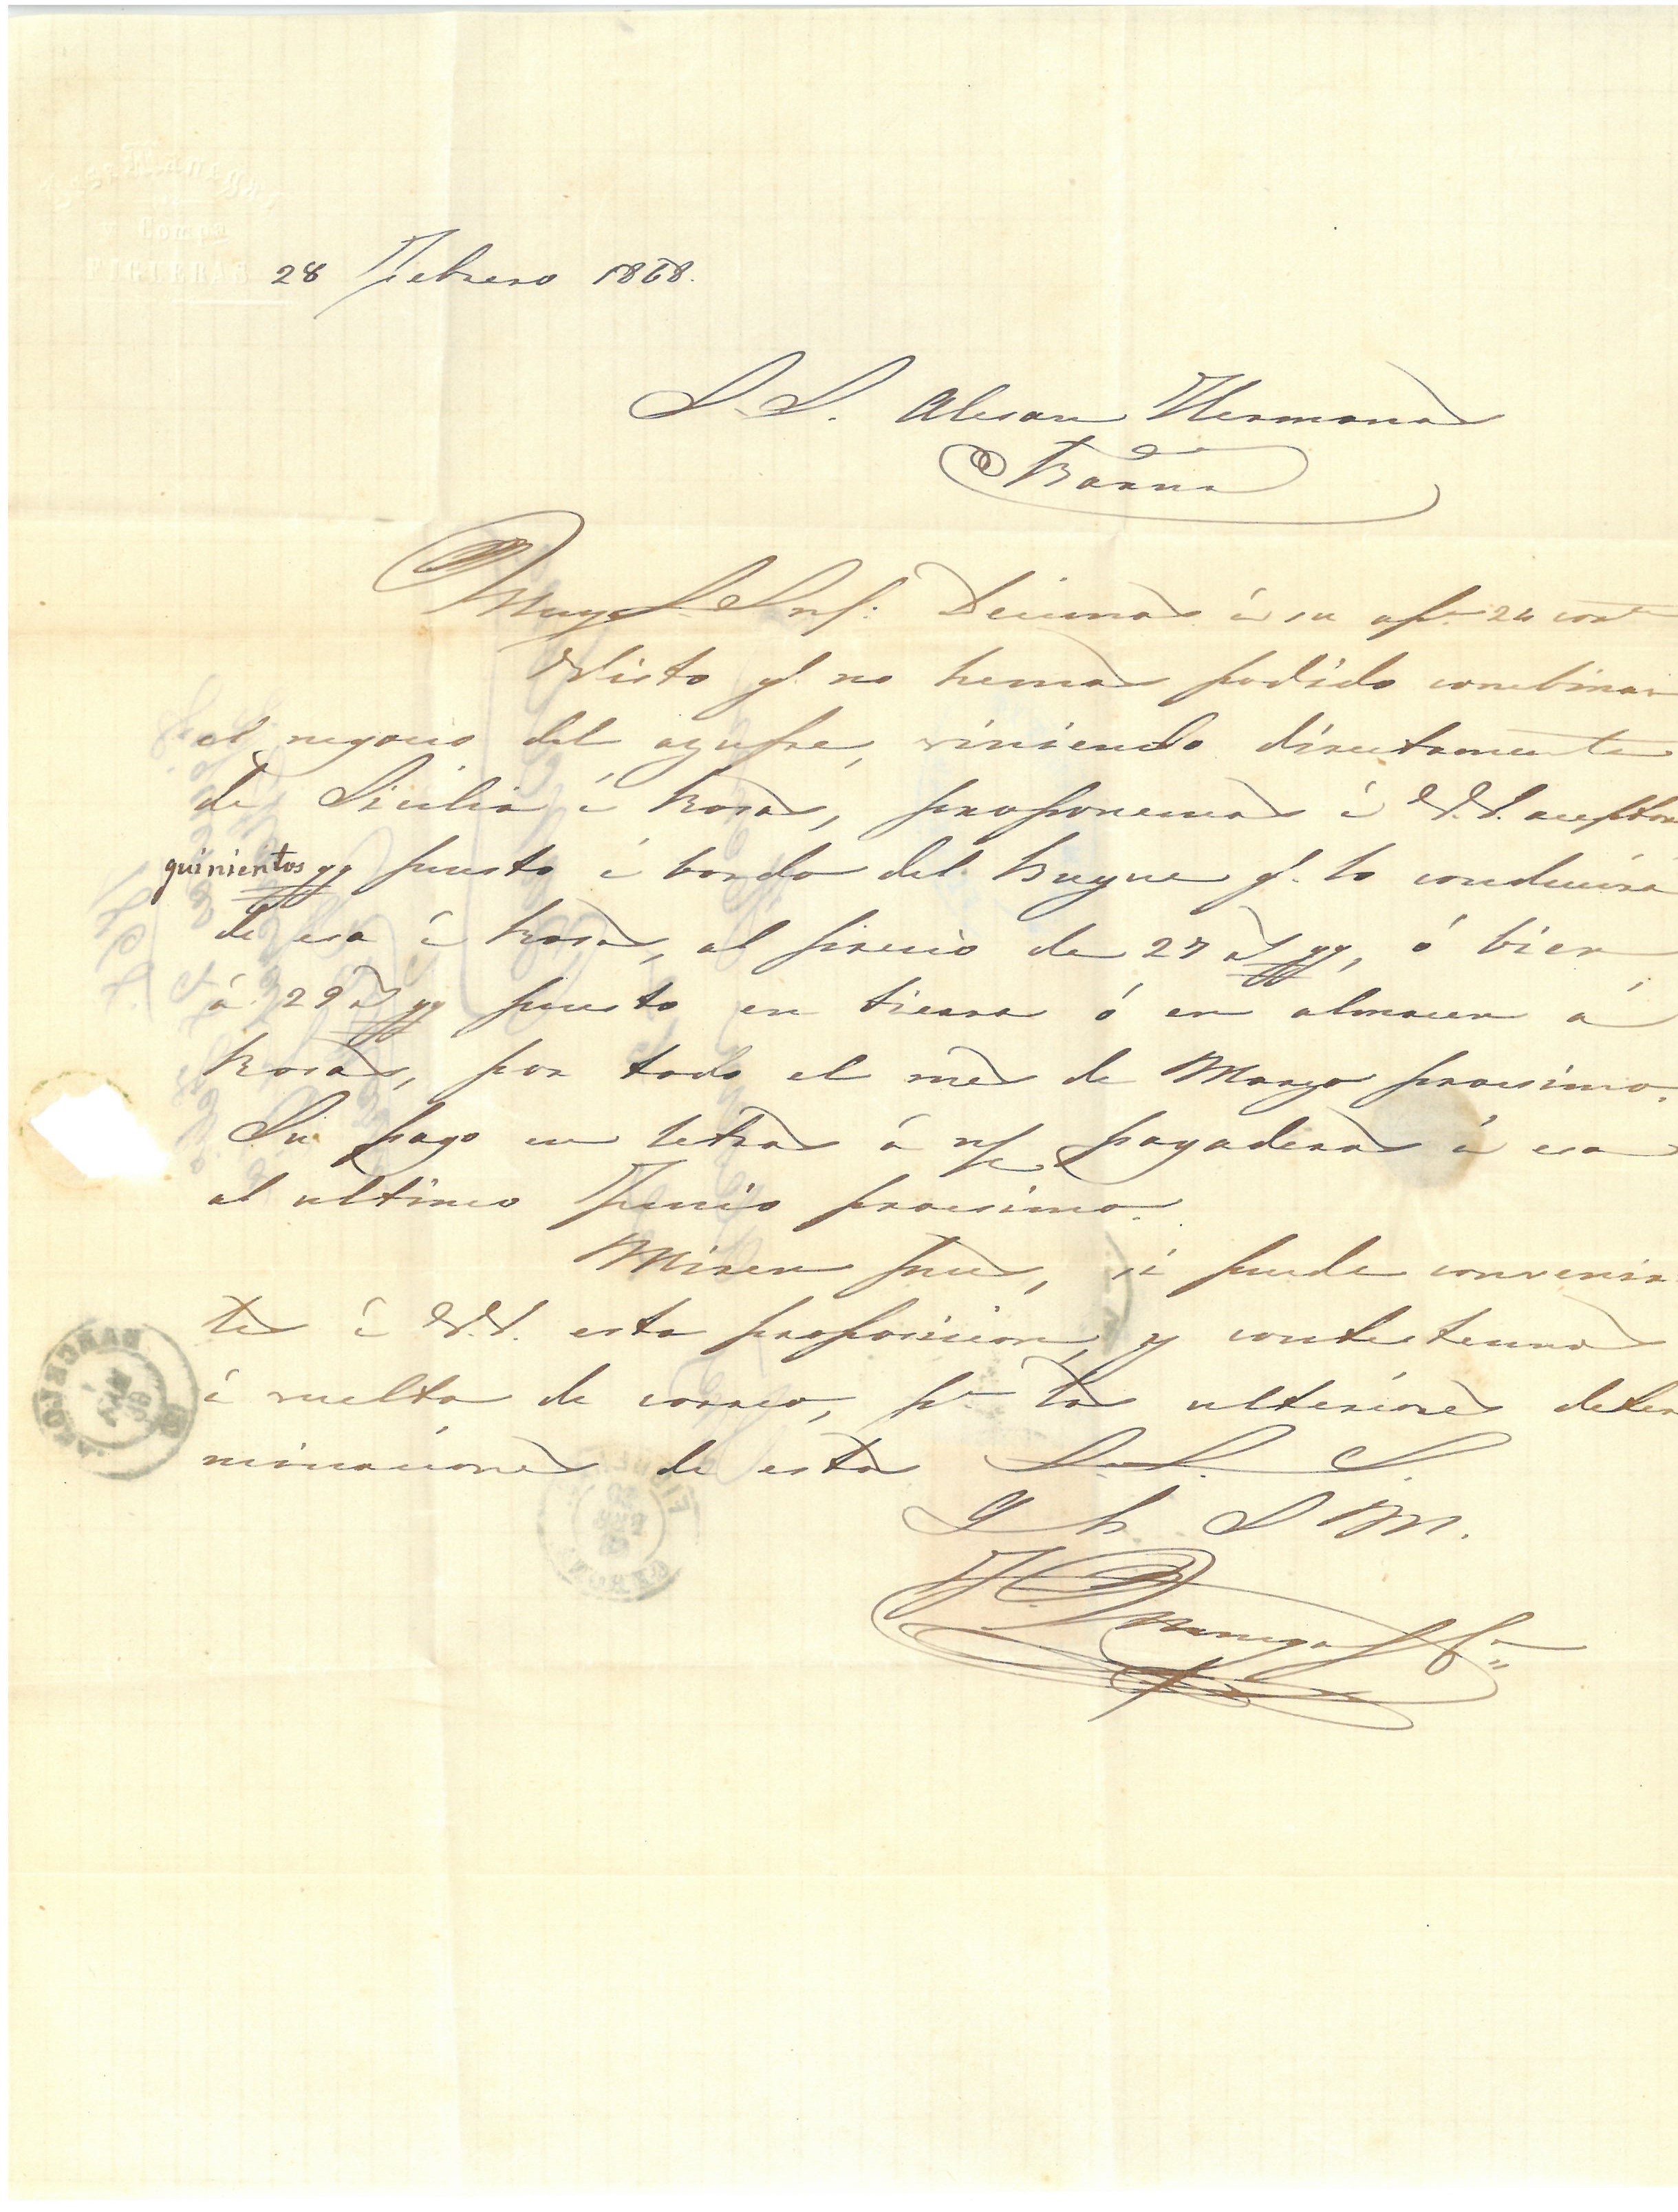 y Compª
FIGUERAS
28 Febrero 1868.
S.S. Alesan Hermanos
Barna
Muy S. Ntrs: Decimos á su apª 24 corte
Visto q. no hemos podido combinar
el negocio del azufre, viniendo directamente
de Sicilia á Rosas, proponemos á V.V. aceptar
quinientos qq puesto á bordo del Buque q. lo conducirá
de esa á Rosas, al precio de 27 rs qq, ó bien
á 29 rs qq puesto en tierra ó en almacen á
Rosas, por todo el mes de Marzo procsimo.
Su pago en letras á n/c pagaderas á esa
al ultimo Junio procsimo.
Miren pues, si puede convenir
les á V.V. esta proposicion, y contestennos
á vuelta de correo, pª las ulteriores deter
minaciones de estos S. S. S.
Q. b. S. M.
BARCELONA
FIGUERAS
GERONA